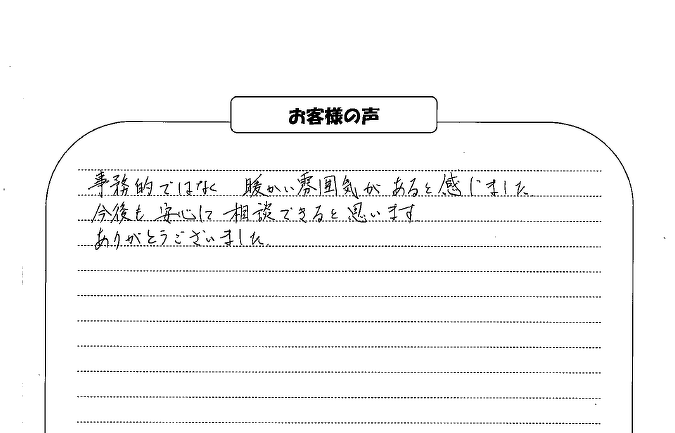 お客様の声
事務的ではなく 暖かい雰囲気が あると感じました
今後も 安心して 相談できると思います
ありがとうございました。